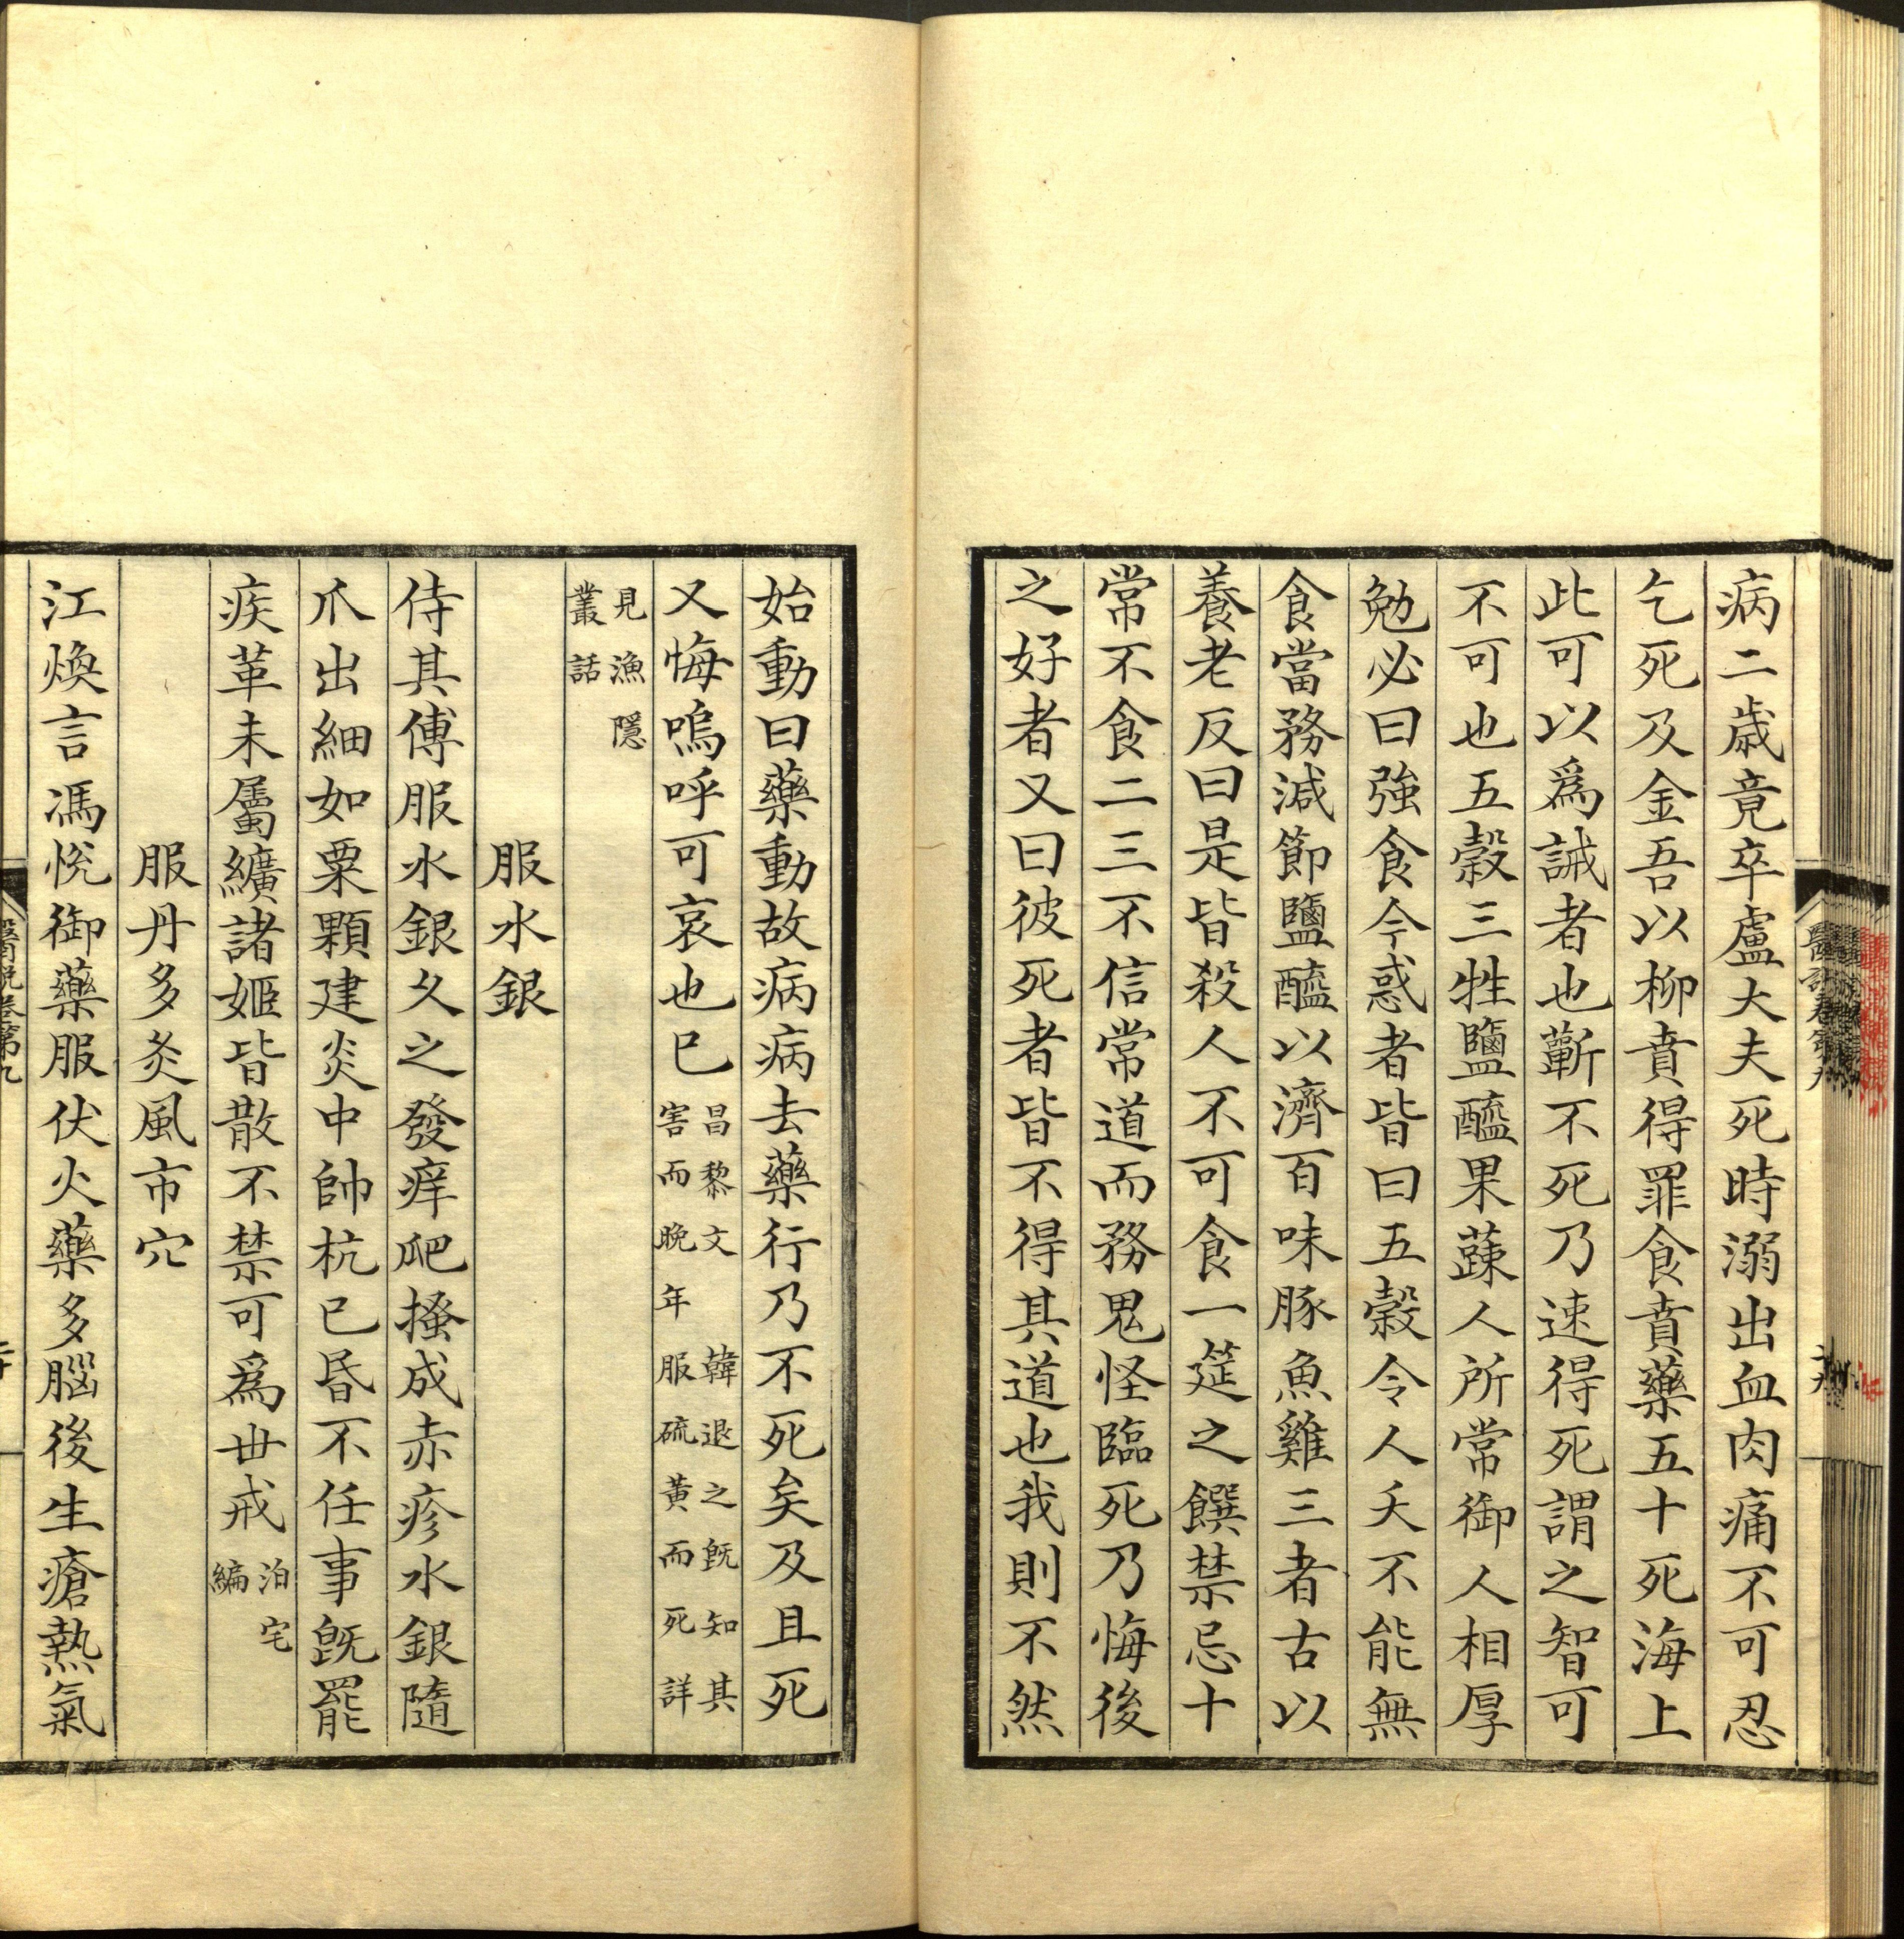 病二歳竟卒盧大夫死時溺出血肉痛不可忍
乞死乃金吾以柳賁得罪食賁藥五十死海上
此可以爲誡者也蘄不死乃速得死謂之智可
不可也五穀三牲鹽醯果蔬人所常御人相厚
勉必曰強食今惑者皆曰五穀令人夭不能無
食當務減節鹽醯以濟百味豚魚雞三者古以
養老反曰是皆殺人不可食一筵之饌禁忌十
常不食二三不信常道而務鬼怪臨死乃悔後
之好者又曰彼死者皆不得其道也我則不然
始動曰藥動故病病去藥行乃不死矣及且死
又悔嗚呼可哀也已
昌黎文 韓退之旣知其
害而晚年服硫黃而死詳
見漁隱
叢話
服水銀
侍其傅服水銀久之發痒爬搔成赤疹水銀隨
爪出細如粟顆建炎中帥杭已昏不任事旣罷
疾革未屬纊諸姬皆散不禁可爲世戒
泊宅
編
服丹多灸風市穴
江煥言馮悅御藥服伏火藥多腦後生瘡熱氣
醫說卷第九